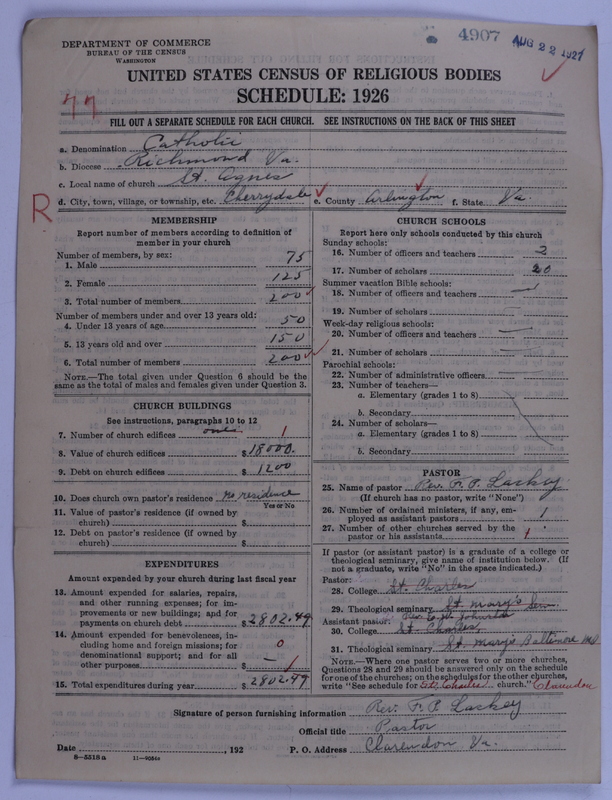 4907 AUG 22 1927
DEPARTMENT OF COMMERCE
BUREAU OF THE CENSUS
WASHINGTON
UNITED STATES CENSUS OF RELIGIOUS BODIES
SCHEDULE: 1926
77
FILL OUT A SEPARATE SCHEDULE FOR EACH CHURCH. SEE INSTRUCTIONS ON THE BACK OF THIS SHEET
a. Denomination Catholic
b. Diocese Richmond Va.
c. Local name of church St. Agnes
R
d. City, town, village, or township, etc. Cherrydale e. County Arlington f. State Va.
MEMBERSHIP
Report number of members according to definition of
member in your church
Number of members, by sex:
1. Male 75
2. Female 125
3. Total number of members 200
Number of members under and over 13 years old:
4. Under 13 years of age 50
5. 13 years old and over 150
6. Total number of members 200
NOTE.—The total given under Question 6 should be the
same as the total of males and females given under Question 3.
CHURCH BUILDINGS
See instructions, paragraphs 10 to 12
7. Number of church edifices one 1
8. Value of church edifices $ 18000.
9. Debt on church edifices $ 1200
10. Does church own pastor's residence no residence
Yes or No
11. Value of pastor's residence (if owned by
church) $
12. Debt on pastor's residence (if owned by
church) $
EXPENDITURES
Amount expended by your church during last fiscal year
13. Amount expended for salaries, repairs,
and other running expenses; for im-
provements or new buildings; and for
payments on church debt $ 2802.49
14. Amount expended for benevolences, in-
cluding home and foreign missions; for
denominational support; and for all
other purposes $ 0
15. Total expenditures during year $ 2802.49
CHURCH SCHOOLS
Report here only schools conducted by this church
Sunday schools:
16. Number of officers and teachers 2
17. Number of scholars 20
Summer vacation Bible schools:
18. Number of officers and teachers
19. Number of scholars
Week-day religious schools:
20. Number of officers and teachers
21. Number of scholars
Parochial schools:
22. Number of administrative officers
23. Number of teachers—
a. Elementary (grades 1 to 8)
b. Secondary
24. Number of scholars—
a. Elementary (grades 1 to 8)
b. Secondary
PASTOR
25. Name of pastor Rev. F. P. Lackey
(If church has no pastor, write "None")
26. Number of ordained ministers, if any, em-
ployed as assistant pastors 1
27. Number of other churches served by the
pastor or his assistants 1
If pastor (or assistant pastor) is a graduate of a college or
theological seminary, give name of institution below. (If
not a graduate, write "No" in the space indicated.)
Pastor:
28. College St. Charles
29. Theological seminary St. Mary's Sem.
Assistant pastor: Rev.
30. College St. Charles
31. Theological seminary St. Mary's Baltimore Md.
NOTE.—Where one pastor serves two or more churches,
Questions 28 and 29 should be answered only on the schedule
for one of the churches; on the schedules for the other churches,
write "See schedule for St. Charles church." Clarendon
Signature of person furnishing information Rev. F. P. Lackey
Official title Pastor
Date , 192 P. O. Address Clarendon Va.
8—5518a 11—9051a